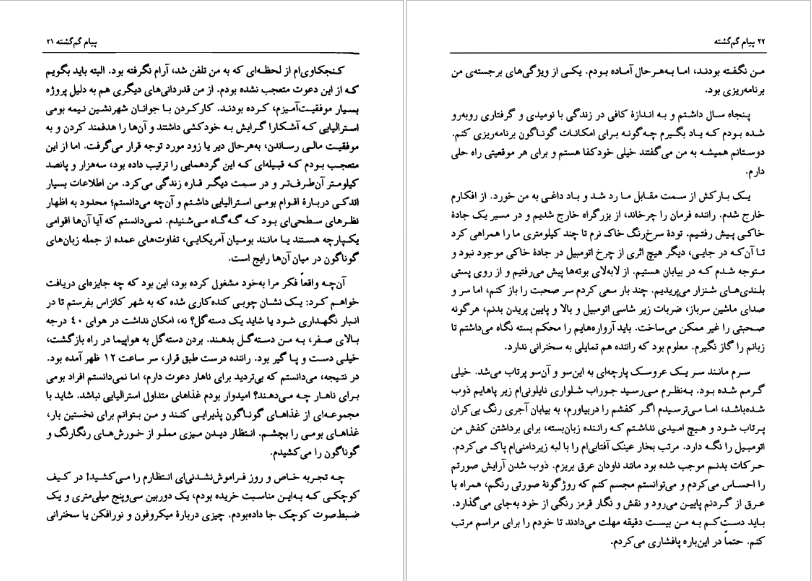 پیام گم‌گشته ۲۱
کنجکاوی‌ام از لحظه‌ای که به من تلفن شد، آرام نگرفته بود. البته باید بگویم
که از این دعوت متعجب نشده بودم. از من قدردانی‌های دیگری هم به دلیل پروژه
بسیار موفقیت‌آمیزم، کرده بودند. کارکردن با جوانان شهرنشین نیمه بومی
استرالیایی که آشکارا گرایش به خودکشی داشتند و آن‌ها را هدفمند کردن و به
موفقیت مالی رساندن، به‌هرحال دیر یا زود مورد توجه قرار می‌گرفت. اما از این
متعجب بودم که قبیله‌ای که این گردهمایی را ترتیب داده بود، سه‌هزار و پانصد
کیلومتر آن‌طرف‌تر و در سمت دیگر قاره زندگی می‌کرد. من اطلاعات بسیار
اندکی دربارهٔ اقوام بومی استرالیایی داشتم و آن‌چه می‌دانستم؛ محدود به اظهار
نظرهای سطحی‌ای بود که گه‌گاه می‌شنیدم. نمی‌دانستم که آیا آن‌ها اقوامی
یک‌پارچه هستند یا مانند بومیان آمریکایی، تفاوت‌های عمده از جمله زبان‌های
گوناگون در میان آن‌ها رایج است.
آن‌چه واقعاً فکر مرا به‌خود مشغول کرده بود، این بود که چه جایزه‌ای دریافت
خواهم کرد: یک نشان چوبی کنده‌کاری شده که به شهر کانزاس بفرستم تا در
انبار نگهداری شود یا شاید یک دسته‌گل؟ نه، امکان نداشت در هوای ۴۰ درجه
بالای صفر، به من دسته‌گل بدهند. بردن دسته‌گل به هواپیما در راه بازگشت،
خیلی دست و پا گیر بود. راننده درست طبق قرار، سر ساعت ۱۲ ظهر آمده بود.
در نتیجه، می‌دانستم که بی‌تردید برای ناهار دعوت دارم، اما نمی‌دانستم افراد بومی
برای ناهار چه می‌دهند؟ امیدوار بودم غذاهای متداول استرالیایی نباشد. شاید با
مجموعه‌ای از غذاهای گوناگون پذیرایی کنند و من بتوانم برای نخستین بار،
غذاهای بومی را بچشم. انتظار دیدن میزی مملو از خورش‌های رنگارنگ و
گوناگون را می‌کشیدم.
چه تجربه خاص و روز فراموش‌نشدنی‌ای انتظارم را می‌کشید! در کیف
کوچکی که به‌این مناسبت خریده بودم، یک دوربین سی‌وپنج میلی‌متری و یک
ضبط‌صوت کوچک جا داده‌بودم. چیزی دربارهٔ میکروفون و نورافکن یا سخنرانی
۲۲ پیام گم‌گشته
من نگفته بودند، اما به‌هرحال آماده بودم. یکی از ویژگی‌های برجسته‌ی من
برنامه‌ریزی بود.
پنجاه سال داشتم و به اندازهٔ کافی در زندگی با نومیدی و گرفتاری روبه‌رو
شده بودم که یاد بگیرم چه‌گونه برای امکانات گوناگون برنامه‌ریزی کنم.
دوستانم همیشه به من می‌گفتند خیلی خودکفا هستم و برای هر موقعیتی راه حلی
دارم.
یک بارکش از سمت مقابل ما رد شد و باد داغی به من خورد. از افکارم
خارج شدم. راننده فرمان را چرخاند، از بزرگراه خارج شدیم و در مسیر یک جادهٔ
خاکی پیش رفتیم. تودهٔ سرخ‌رنگ خاک نرم تا چند کیلومتری ما را همراهی کرد
تا آن‌که در جایی، دیگر هیچ اثری از چرخ اتومبیل در جادهٔ خاکی موجود نبود و
متوجه شدم که در بیابان هستیم. از لابه‌لای بوته‌ها پیش می‌رفتیم و از روی پستی
بلندی‌های شنزار می‌پریدیم. چند بار سعی کردم سر صحبت را باز کنم، اما سر و
صدای ماشین سرباز، ضربات زیر شاسی اتومبیل و بالا و پایین پریدن بدنم، هرگونه
صحبتی را غیر ممکن می‌ساخت. باید آرواره‌هایم را محکم بسته نگاه می‌داشتم تا
زبانم را گاز نگیرم. معلوم بود که راننده هم تمایلی به سخنرانی ندارد.
سرم مانند سر یک عروسک پارچه‌ای به این‌سو و آن‌سو پرتاب می‌شد. خیلی
گرمم شده بود. به‌نظرم می‌رسید جوراب شلواری نایلونی‌ام زیر پاهایم ذوب
شده‌باشد، اما می‌ترسیدم اگر کفشم را دربیاورم، به بیابان آجری رنگ بی‌کران
پرتاب شود و هیچ امیدی نداشتم که راننده زبان‌بسته، برای برداشتن کفش من
اتومبیل را نگه دارد. مرتب بخار عینک آفتابی‌ام را با لبه زیردامنی‌ام پاک می‌کردم.
حرکات بدنم موجب شده بود مانند ناودان عرق بریزم. ذوب شدن آرایش صورتم
را احساس می‌کردم و می‌توانستم مجسم کنم که روژگونهٔ صورتی رنگم، همراه با
عرق از گردنم پایین می‌رود و نقش و نگار قرمز رنگی از خود به‌جای می‌گذارد.
باید دست‌کم به من بیست دقیقه مهلت می‌دادند تا خودم را برای مراسم مرتب
کنم. حتماً در این‌باره پافشاری می‌کردم.